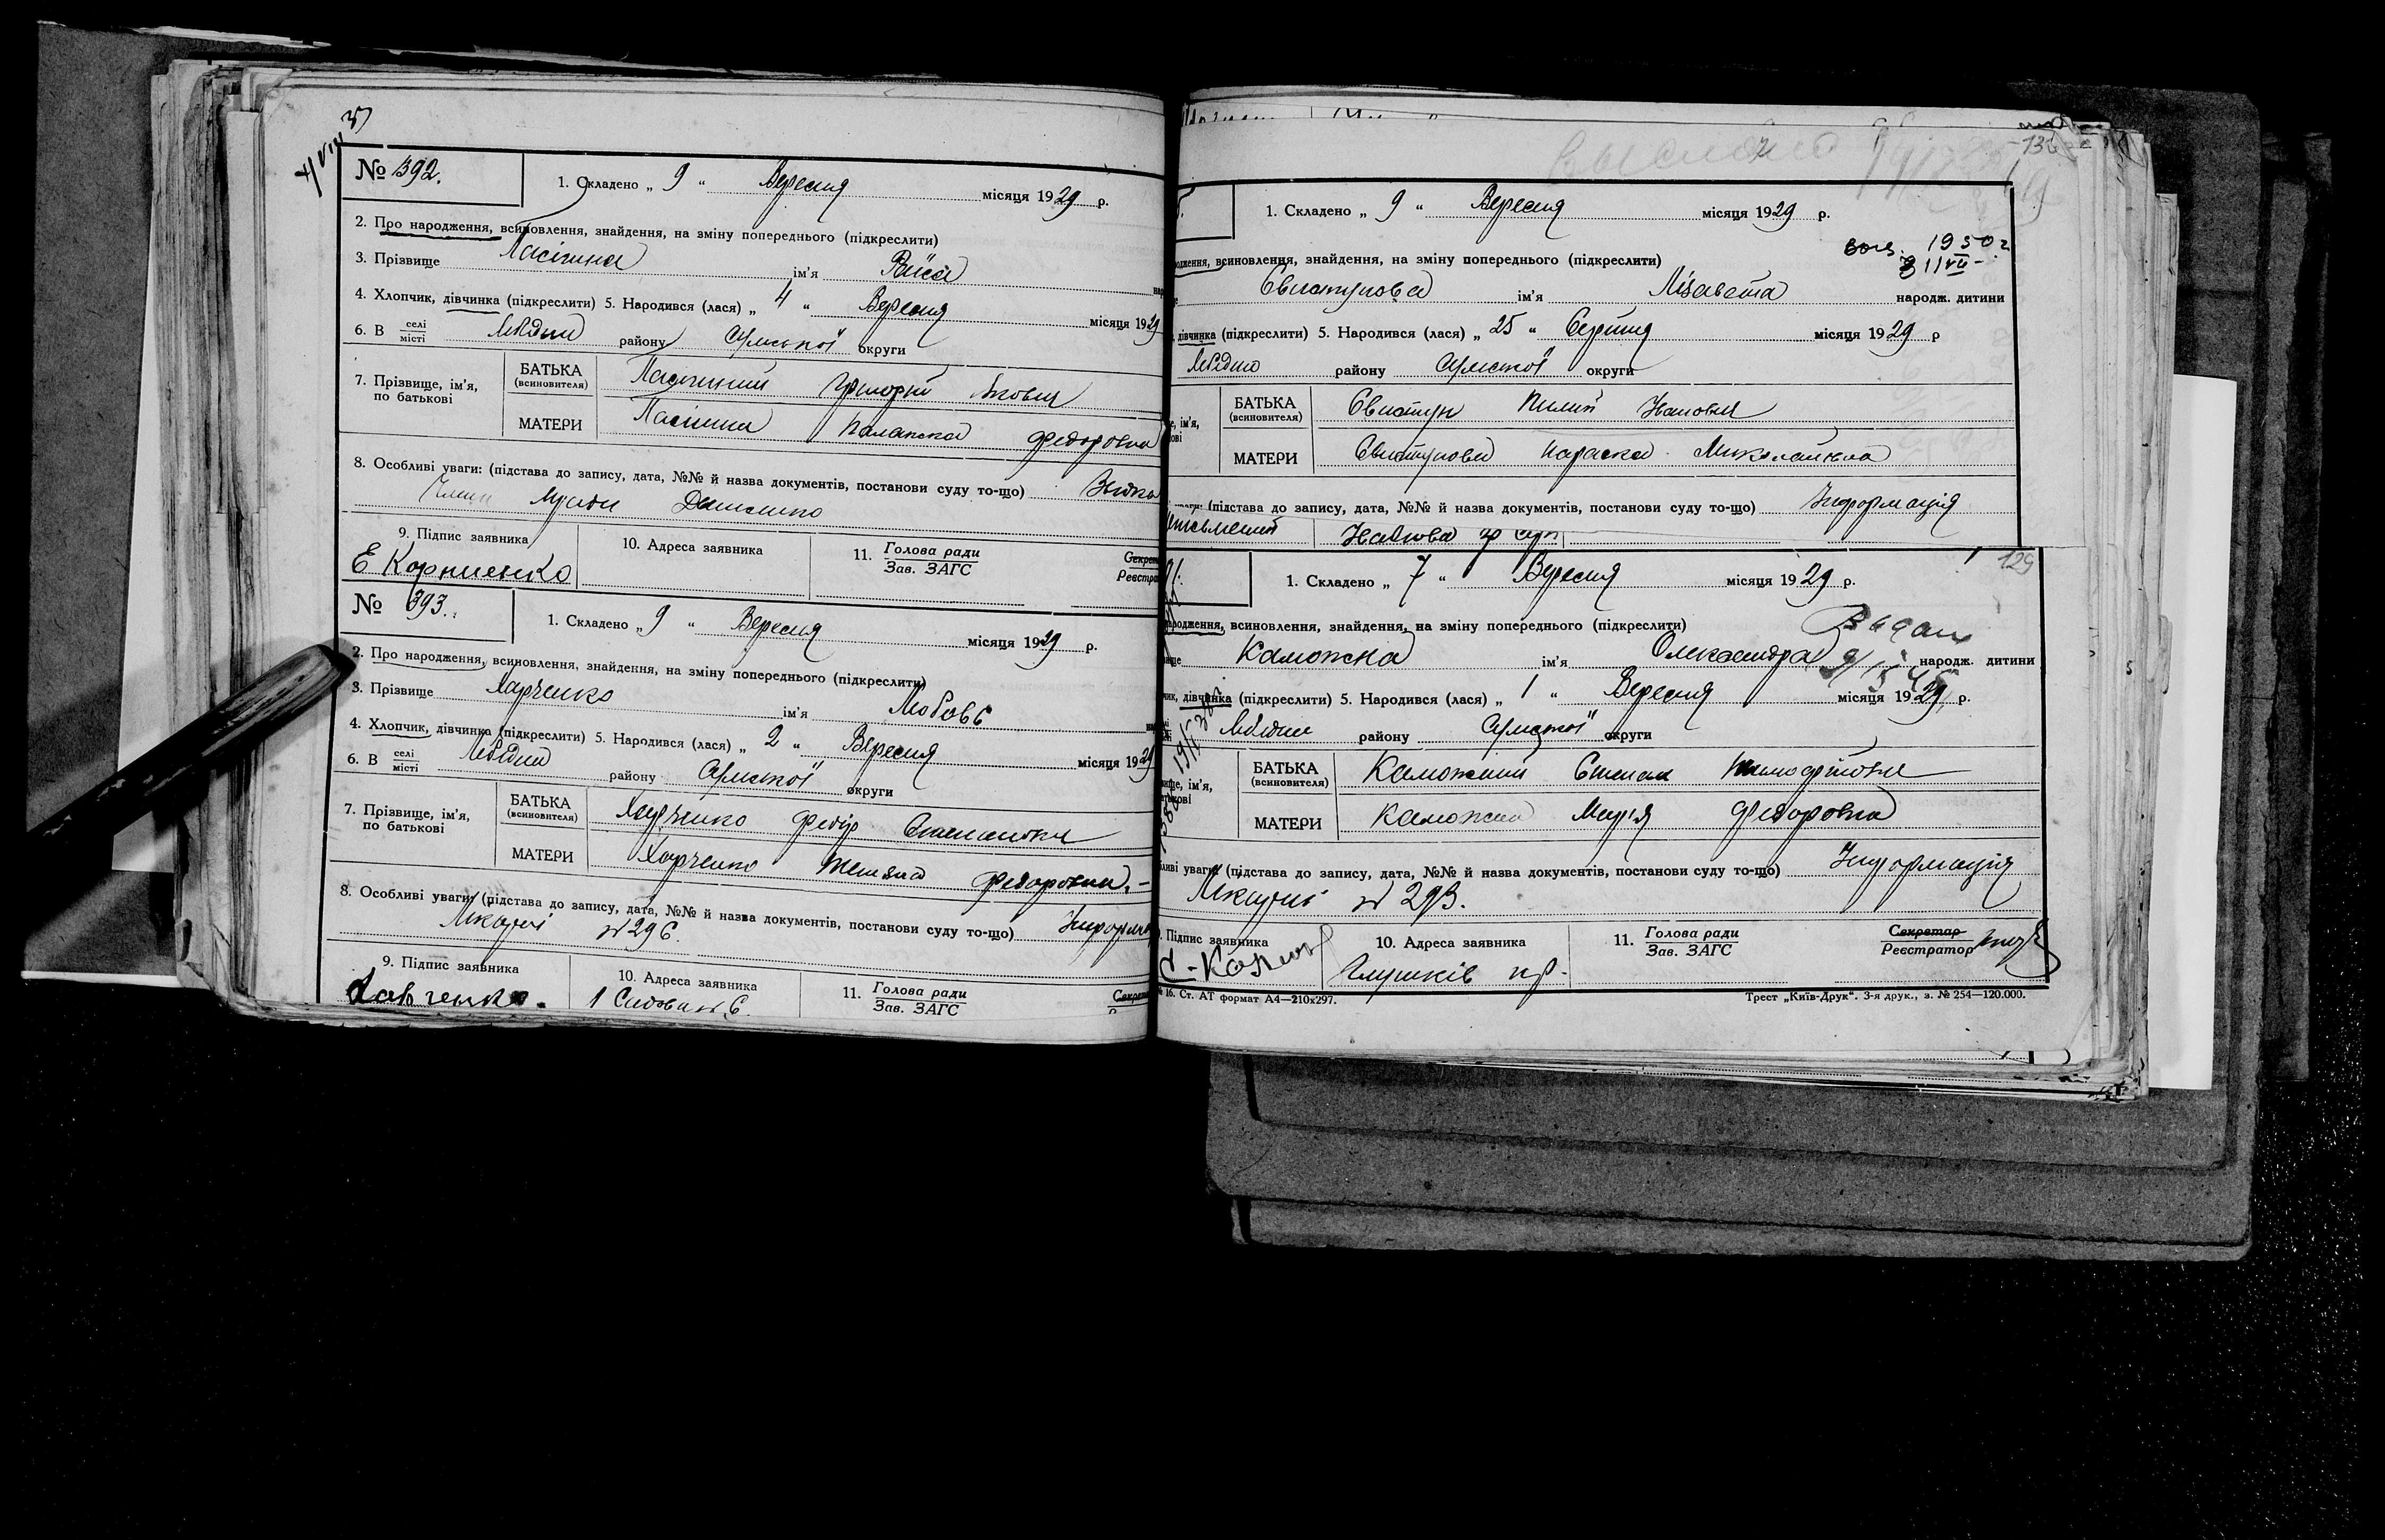 № 392.
1. Складено „ 9 “ Вересня місяця 1929 р.
2. Про народження, всиновлення, знайдення, на зміну попереднього (підкреслити)
3. Прізвище Пасішна ім'я Раїса
4. Хлопчик, дівчинка (підкреслити) 5. Народився (лася) „ 4 “ Вересня місяця 1929
6. В селі місті Лебедин району Сумської округи
7. Прізвище, ім'я, по батькові
БАТЬКА (всиновителя) Пасішний Григорій Якович
МАТЕРИ Пасішна Палажка Федоровна
8. Особливі уваги: (підстава до запису, дата, №№ й назва документів, постанови суду то-що)
9. Підпис заявника
10. Адреса заявника
11. Голова ради
Зав. ЗАГС
Е Корниенко
№ 393.
1. Складено „ 9 “ Вересня місяця 1929 р.
2. Про народження, всиновлення, знайдення, на зміну попереднього (підкреслити)
3. Прізвище Харченко ім'я Любовь
4. Хлопчик, дівчинка (підкреслити) 5. Народився (лася) „ 2 “ Вересня місяця 1929
6. В селі місті Лебедин району Сумської округи
7. Прізвище, ім'я, по батькові
БАТЬКА (всиновителя) Харченко Федір Степанович
МАТЕРИ Харченко Тетяна Федоровна.
8. Особливі уваги: (підстава до запису, дата, №№ й назва документів, постанови суду то-що)
Лікарні № 296.
9. Підпис заявника
10. Адреса заявника
11. Голова ради
Зав. ЗАГС
1. Складено „ 9 “ Вересня місяця 1929 р.
всиновлення, знайдення, на зміну попереднього (підкреслити)
1950 г
Свистунова ім'я Лізавета народж. дитини
дівчинка (підкреслити) 5. Народився (лася) „ 25 “ Серпня місяця 1929 р
Лебедин району Сумської округи
БАТЬКА (всиновителя) Свистун Пилип Іванович
МАТЕРИ Свистунова Параска Миколаївна
(підстава до запису, дата, №№ й назва документів, постанови суду то-що) Інформація
129
1. Складено „ 7 “ Вересня місяця 1929 р.
всиновлення, знайдення, на зміну попереднього (підкреслити)
Каможна ім'я Олександра народж. дитини
дівчинка (підкреслити) 5. Народився (лася) „ 1 “ Вересня місяця 1929 р.
Лебедин району Сумської округи
БАТЬКА (всиновителя) Каможний Степан Тимофійович
МАТЕРИ Каможна Марія Федоровна
(підстава до запису, дата, №№ й назва документів, постанови суду то-що) Інформація
Лікарні № 293.
Підпис заявника
10. Адреса заявника
11. Голова ради
Зав. ЗАГС
Секретар
Реєстратор
16. Ст. АТ формат А4—210х297.
Трест „Київ-Друк“. 3-я друк., з. № 254—120.000.